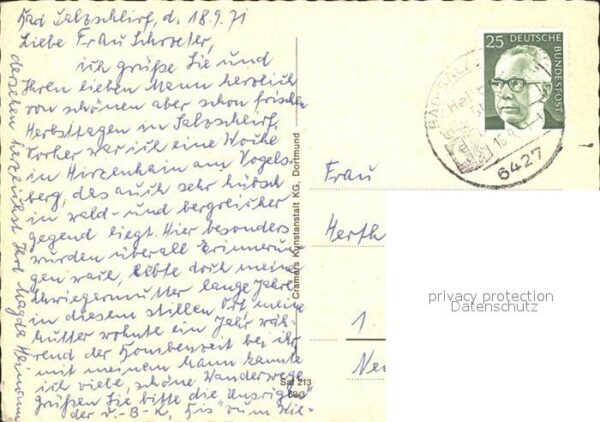 Bad Salzschlirf, d. 18.9.71
Liebe Frau Schroeter,
ich grüße Sie und
Ihren lieben Mann herzlich
von schönen aber schon frischen
Herbsttagen in Salzschlirf.
Vorher war ich eine Woche
in Hirzenhain am Vogels-
berg, das auch sehr hübsch
in wald- und bergreicher
Gegend liegt. Hier besonders
wurden überall Erinnerun-
gen wach, lebte doch meine
Schwiegermutter lange Jahre
in diesem stillen Ort, meine
Mutter wohnte ein Jahr wäh-
rend der Bombenzeit bei ihr
mit meinem Mann kannte
ich viele, schöne Wanderwege
Grüßen Sie bitte die "Unsrigen"
der v.-B-K. Bis zum Wie-
dersehen herzlichst Ihre Magda
Cramers Kunstanstalt KG, Dortmund
Sal 213
25 DEUTSCHE BUNDESPOST
BAD SALZ
Heil
6427
Frau
Herth
1.
privacy protection
Datenschutz